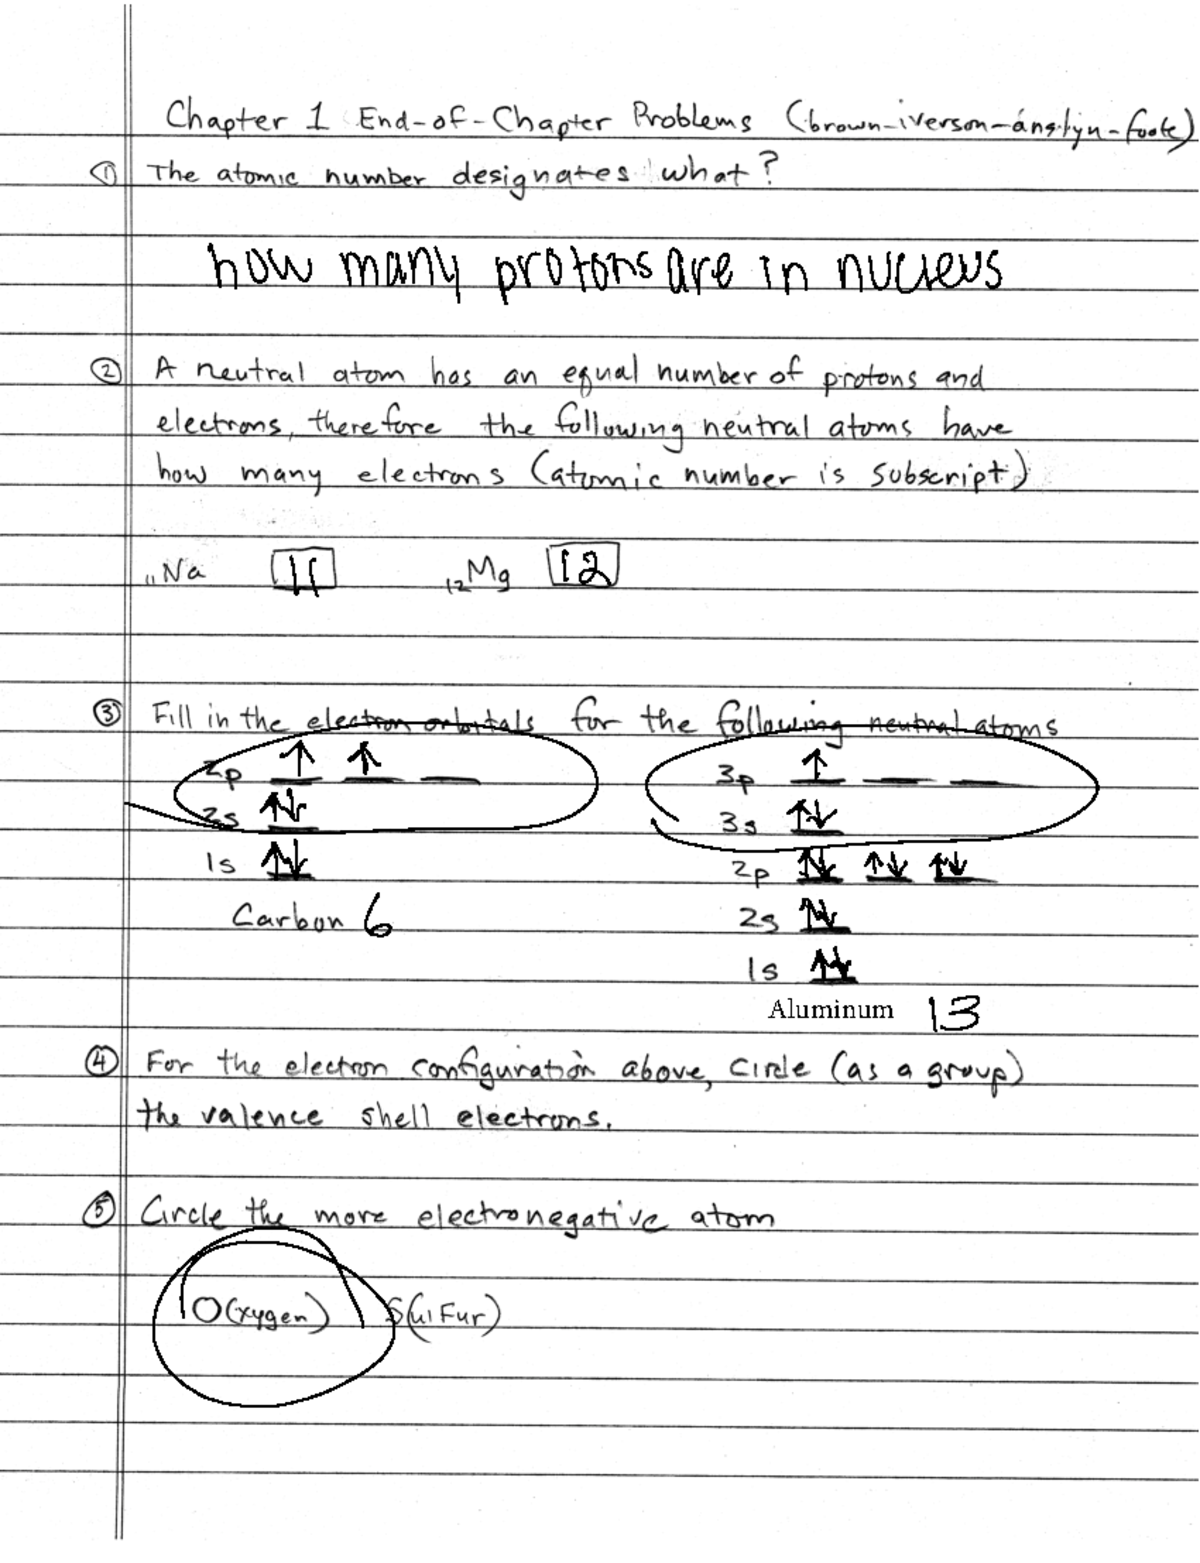 Chapter 1 End-of-Chapter Problems (brown-iverson-anslyn-foote)
① The atomic number designates what?
how many protons are in nucleus
② A neutral atom has an equal number of protons and
electrons, therefore the following neutral atoms have
how many electrons (atomic number is subscript)
₁₁Na 11 ₁₂Mg 12
③ Fill in the electron orbitals for the following neutral atoms
2p ↑ ↑ 3p ↑
2s ↑↓ 3s ↑↓
1s ↑↓ 2p ↑↓ ↑↓ ↑↓
Carbon 6 2s ↑↓
1s ↑↓
Aluminum 13
④ For the electron configuration above, circle (as a group)
the valence shell electrons.
⑤ Circle the more electronegative atom
O(xygen) S(ulfur)